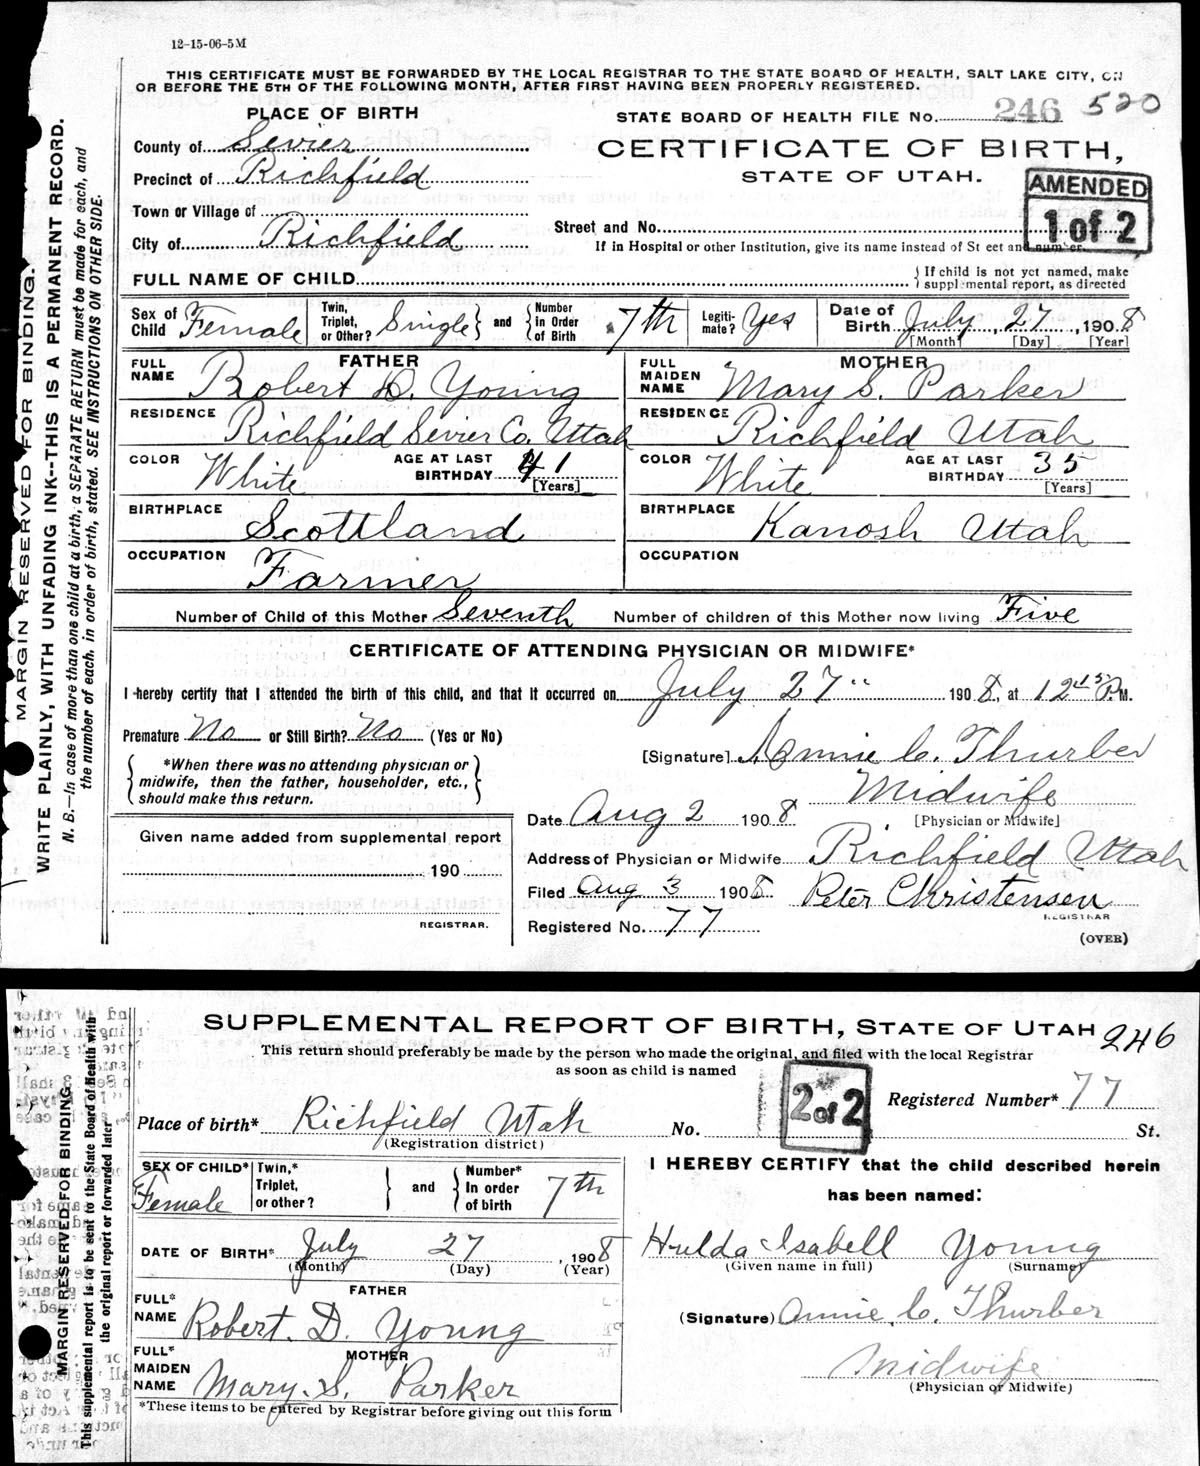 12-15-06-5M
THIS CERTIFICATE MUST BE FORWARDED BY THE LOCAL REGISTRAR TO THE STATE BOARD OF HEALTH, SALT LAKE CITY, ON
OR BEFORE THE 5TH OF THE FOLLOWING MONTH, AFTER FIRST HAVING BEEN PROPERLY REGISTERED.
PLACE OF BIRTH
STATE BOARD OF HEALTH FILE No. 246 520
County of Sevier
CERTIFICATE OF BIRTH,
Precinct of Richfield
STATE OF UTAH.
AMENDED
1 of 2
Town or Village of
Street and No.
City of Richfield
If in Hospital or other Institution, give its name instead of St eet and number.
FULL NAME OF CHILD
If child is not yet named, make
suppl mental report, as directed
Sex of Child Female
Twin, Triplet, or Other? Single and Number in Order of Birth 7th
Legiti-mate? Yes
Date of Birth July 27, 1908
[Month] [Day] [Year]
FATHER
FULL NAME Robert D. Young
MOTHER
FULL MAIDEN NAME Mary S. Parker
RESIDENCE Richfield Sevier Co. Utah
RESIDENCE Richfield Utah
COLOR White AGE AT LAST BIRTHDAY 41 [Years]
COLOR White AGE AT LAST BIRTHDAY 35 [Years]
BIRTHPLACE Scottland
BIRTHPLACE Kanosh Utah
OCCUPATION Farmer
OCCUPATION
Number of Child of this Mother Seventh Number of children of this Mother now living Five
CERTIFICATE OF ATTENDING PHYSICIAN OR MIDWIFE*
I hereby certify that I attended the birth of this child, and that it occurred on July 27" 1908, at 12 15 P.M.
Premature No or Still Birth? No (Yes or No)
[Signature] Annie C. Thurber
*When there was no attending physician or
midwife, then the father, householder, etc.,
should make this return.
Midwife
[Physician or Midwife]
Date Aug 2 1908
Given name added from supplemental report
190
REGISTRAR.
Address of Physician or Midwife Richfield Utah
Filed Aug 3 1908 Peter Christensen
REGISTRAR
Registered No. 77
(OVER)
MARGIN RESERVED FOR BINDING.
WRITE PLAINLY, WITH UNFADING INK--THIS IS A PERMANENT RECORD.
N. B.—In case of more than one child at a birth, a SEPARATE RETURN must be made for each, and
the number of each, in order of birth, stated. SEE INSTRUCTIONS ON OTHER SIDE.
SUPPLEMENTAL REPORT OF BIRTH, STATE OF UTAH 246
This return should preferably be made by the person who made the original, and filed with the local Registrar
as soon as child is named
2 of 2
Registered Number* 77
Place of birth* Richfield Utah No. St.
(Registration district)
SEX OF CHILD* Female
Twin,* Triplet, or other? and Number* In order of birth 7th
I HEREBY CERTIFY that the child described herein
has been named:
DATE OF BIRTH* July 27, 1908
(Month) (Day) (Year)
Hulda Isabell Young
(Given name in full) (Surname)
FATHER
FULL* NAME Robert. D. Young
(Signature) Annie, C. Thurber
MOTHER
FULL* MAIDEN NAME Mary. S. Parker
Midwife
(Physician or Midwife)
*These items to be entered by Registrar before giving out this form
MARGIN RESERVED FOR BINDING
This supplemental report is to be sent to the State Board of Health with
the original report or forwarded later